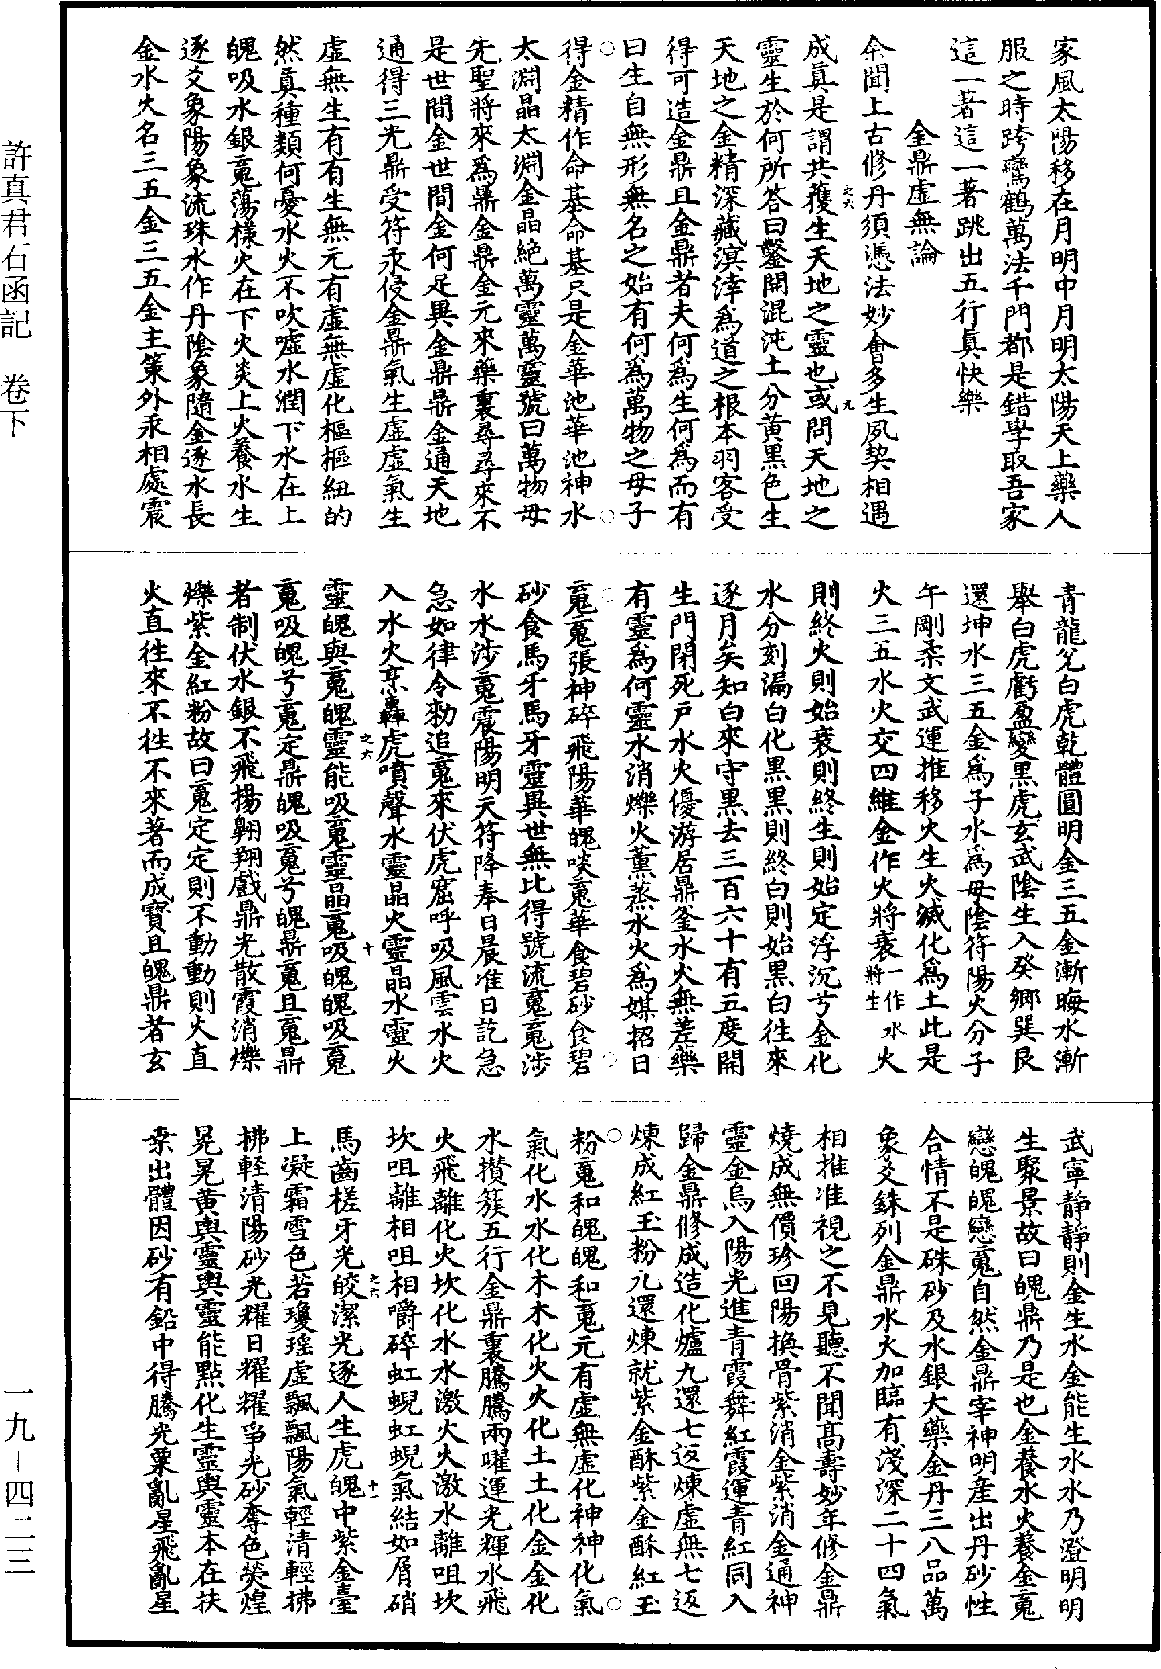 家風太陽移在月明中月明太陽天上藥人
服之時跨鸞鶴萬法千門都是錯學取吾家
這一著這一著跳出五行真快樂
金鼎虛無論
余聞上古修丹須憑法妙會多生夙契相遇
成真是謂共穫生天地之靈也或問天地之
靈生於何所答曰鑿開混沌土分黃黑色生
天地之金精深藏溟涬為道之根本羽客受
得可造金鼎且金鼎者夫何為生何為而有
曰生自無形無名之始有何為萬物之母子
得金精作命基命基只是金華池華池神水
太淵晶太淵金晶絕萬靈萬靈號曰萬物母
先聖將來為鼎金鼎金元來藥裏尋尋來不
是世間金世間金何足異金鼎鼎金通天地
通得三光鼎受符汞侵金鼎氣生虛虛氣生
虛無生有有生無元有虛無虛化樞樞紐的
然真種類何憂水火不吹噓水潤下水在上
魄吸水銀䰟蕩樣火在下火炎上火養水生
逐爻象陽象流珠水作丹陰象隨金逐水長
金水火名三五金三五金主策外汞相處震
青龍兌白虎乾體圓明金三五金漸晦水漸
舉白虎虧盈變黑虎玄武陰生入癸鄉巽艮
還坤水三五金為子水為母陰符陽火分子
午剛柔文武運推移火生火滅化為土此是
火三五水火交四維金作火將衰一作水將生火
則終火則始衰則終生則始定浮沉兮金化
水分刻漏白化黑黑則終白則始黑白往來
逐月矣知白來守黑去三百六十有五度開
生門閉死戶水火優游居鼎釜水火無差藥
有靈為何靈水消爍火薰蒸水火為媒招日
䰟䰟張神碎飛陽華魄啖䰟華食碧砂食碧
砂食馬牙馬牙靈異世無比得號流䰟䰟涉
水水涉䰟震陽明天符降奉日晨准日訖急
急如律令勑追䰟來伏虎窟呼吸風雲水火
入水火烹轟虎噴聲水靈晶火靈晶水靈火
靈魄與䰟魄靈能吸䰟靈晶䰟吸魄魄吸䰟
䰟吸魄兮䰟定鼎魄吸䰟兮魄鼎䰟且䰟鼎
者制伏水銀不飛揚翱翔戲鼎光散霞消爍
爍紫金紅粉故曰䰟定定則不動動則火直
火直往來不往不來著而成寶且魄鼎者玄
武寧靜靜則金生水金能生水水乃澄明明
生聚景故曰魄鼎乃是也金養水火養金䰟
戀魄魄戀䰟自然金鼎宰神明產出丹砂性
合情不是硃砂及水銀大藥金丹三八品萬
象爻銖列金鼎水火加臨有淺深二十四氣
相推准視之不見聽不聞高壽妙年修金鼎
燒成無價珍回陽換骨紫消金紫消金通神
靈金烏入陽光進青霞舞紅霞運青紅同入
歸金鼎修成造化爐九還七返煉虛無七返
煉成紅玉粉九還煉就紫金酥紫金酥紅玉
粉䰟和魄魄和䰟元有虛無虛化神神化氣
氣化水水化木木化火火化土土化金金化
水攢簇五行金鼎裏騰騰兩曜運光輝水飛
火飛離化火坎化水水激火火激水離咀坎
坎咀離相咀相嚼碎虹蜺虹蜺氣結如屑硝
馬齒槎牙光皎潔光逐人生虎魄中紫金臺
上凝霜雪色若瓊瑤虛飄飄陽氣輕清輕拂
拂輕清陽砂光耀日耀耀爭光砂奪色熒煌
晃晃黃輿靈輿靈能點化生靈輿靈本在扶
桑出體因砂有鉛中得騰光粟亂星飛亂星
許真君石函記　卷下
一九－四二三